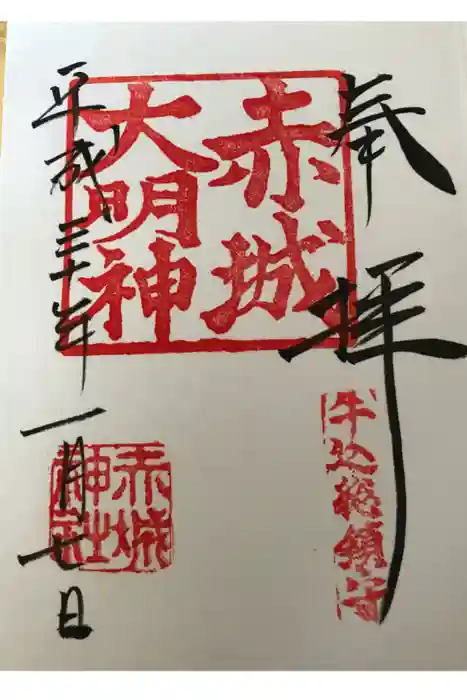 奉拝
牛込総鎮守
赤城
大明神
赤城
神社
平成三十年一月七日